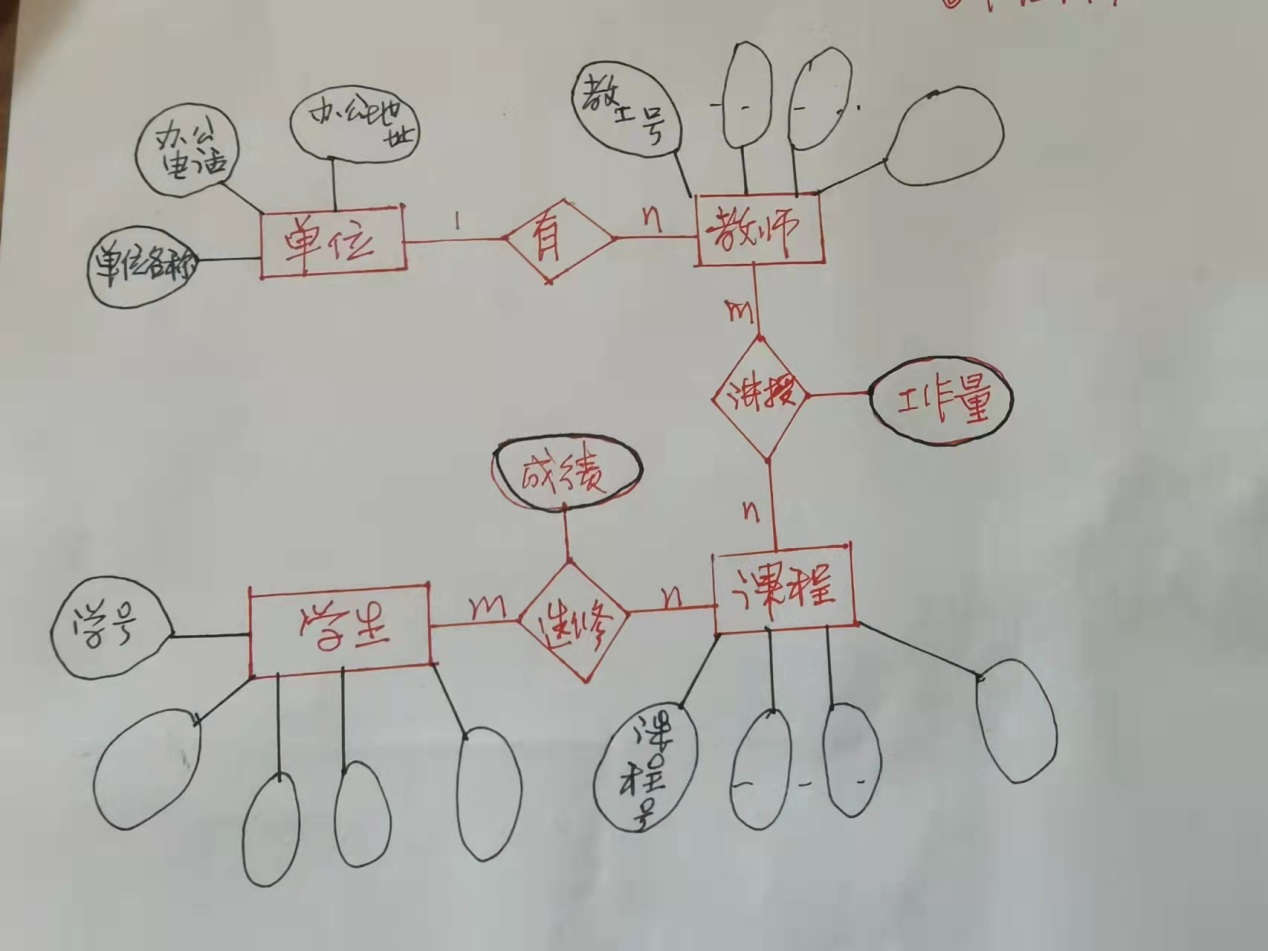 办公
电话
办公地
址
教
工号
单位名称
单位
1
有
n
教师
m
讲授
工作量
n
成绩
学号
学生
m
选修
n
课程
课
程
号